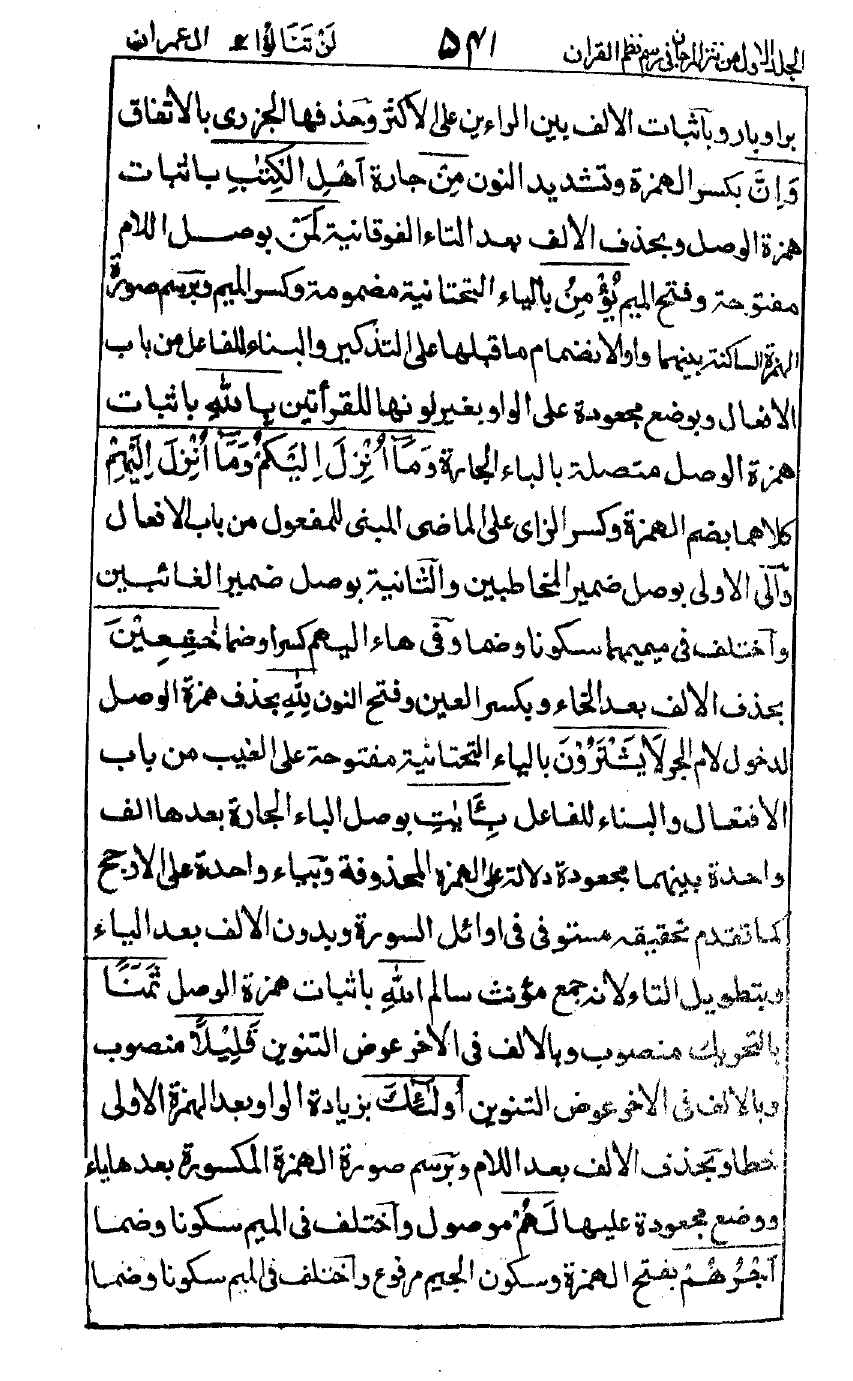 الجلد الاول من نثر المرجان فى رسم نظم القران ۵۴۱ لَنْ تَنَالُوا ۴ ال عمران
براوبار وبآثبات الالف بين الراءين على الاكثر وحذفها الجزرى بالاتفاق
وَاِنَّ بكسر الهمزة وتشديد النون مِنْ جارة اَهْلِ الْكِتٰبِ باثبات
همزة الوصل وبحذف الالف بعد التاء الفوقانية لَمَنْ بوصل اللام
مفتوحة وفتح الميم يُؤْمِنُ بالياء التحتانية مضمومة وكسر الميم وبرسم صورة
الهمزة الساكنة بينهما واوا لانضمام ما قبلها على التذكير والبناء للفاعل من باب
الافعال وبوضع مجعودة على الواو بغير لونها للقرأتين بِاللّٰهِ باثبات
همزة الوصل متصلة بالباء الجارة وَمَآ اُنْزِلَ اِلَيْكُمْ وَمَآ اُنْزِلَ اِلَيْهِمْ
كلاهما بضم الهمزة وكسر الزاى على الماضى المبنى للمفعول من باب الافعال
وآلى الاولى بوصل ضمير المخاطبين والثانية بوصل ضمير الغائبين
وآختلف فى ميميهما سكونا وضما وفى هاء اليهم كسرا وضما خٰشِعِيْنَ
بحذف الالف بعد الخاء وبكسر العين وفتح النون لِلّٰهِ بحذف همزة الوصل
لدخول لام الجر لَا يَشْتَرُوْنَ بالياء التحتانية مفتوحة على الغيب من باب
الافتعال والبناء للفاعل بِـَٔايٰتِ بوصل الباء الجارة بعدها الف
واحدة بينهما مجعودة دلالة على الهمزة المحذوفة وبياء واحدة على الارجح
كما تقدم تحقيقه مستوفى فى اوائل السورة وبدون الالف بعد الياء
وبتطويل التاء لانه جمع مؤنث سالم اللّٰهِ باثبات همزة الوصل ثَمَنًا
بالتحريك منصوب وبالالف فى الاخر عوض التنوين قَلِيْلًا منصوب
وبالالف فى الاخر عوض التنوين اُولٰٓئِكَ بزيادة الواو بعد الهمزة الاولى
خطا وبحذف الالف بعد اللام وبرسم صورة الهمزة المكسورة بعدها ياء
ووضع مجعودة عليها لَهُمْ موصول وآختلف فى الميم سكونا وضما
اَجْرُهُمْ بفتح الهمزة وسكون الجيم مرفوع وآختلف فى الميم سكونا وضما